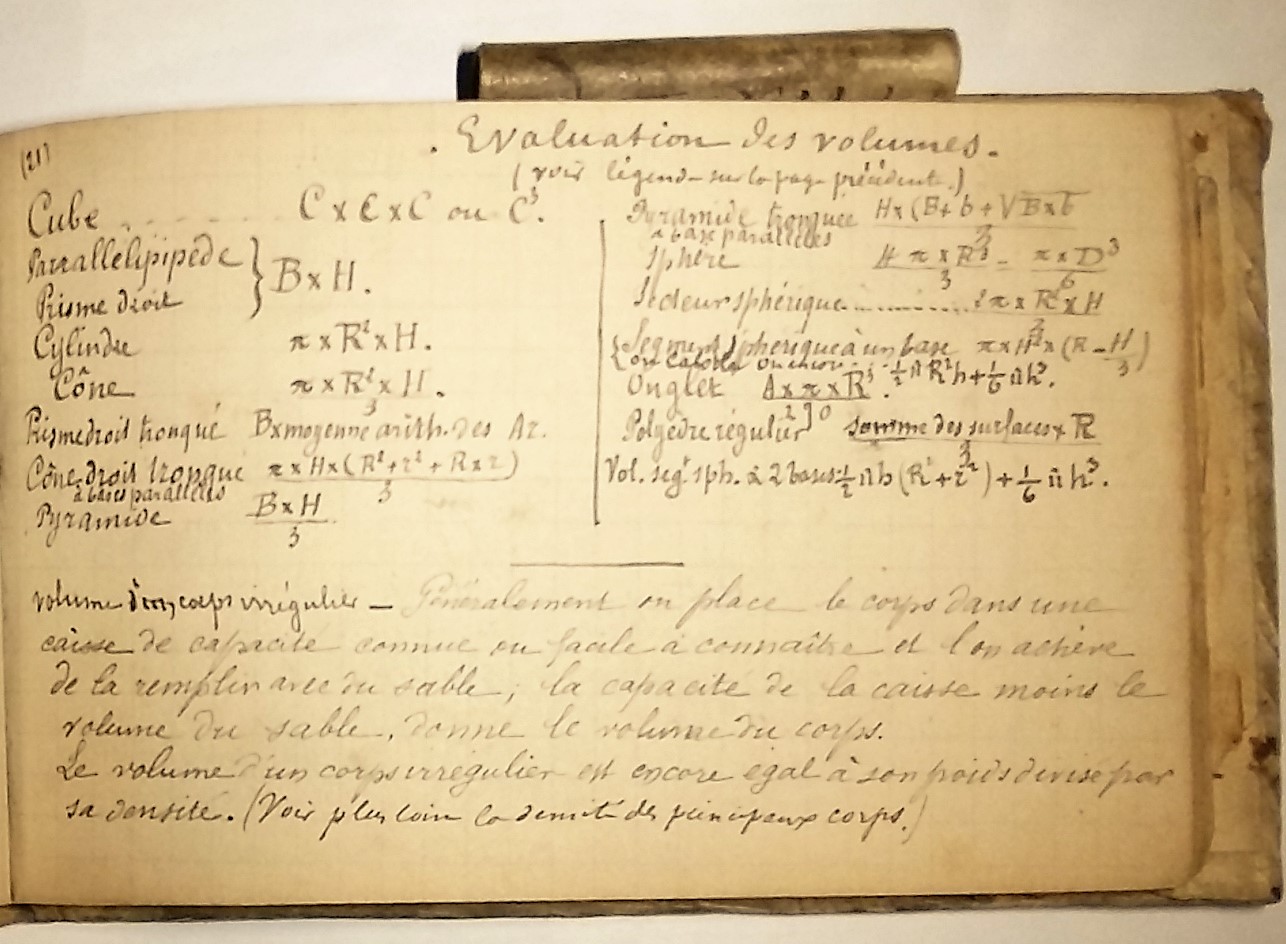 (21)
Evaluation des volumes.
(voir légende sur la page précédente.)
Cube C x C x C ou C³.
Parrallélipipède } B x H.
Prisme droit
Cylindre π x R² x H.
Cône π x R² x H.
3
Prisme droit tronqué B x moyenne arith. des Ar.
Cône droit tronqué π x H x (R² + r² + R x r)
à bases parallèles 3
Pyramide B x H
3
Pyramide tronquée H x (B + b + √B x b
à base parallèles 3
Sphère 4 π x R³ = π x D³
3 6
Secteur sphérique 2 π x R² x H
3
{ Segment sphérique à un base π x H² x (R - H/3)
ou calotte ou encore ½ π R² h + 1/6 π h³.
Onglet A x π x R³.
270
Polyèdre régulier somme des surfaces x R
3
Vol. segt sph. à 2 bases ½ π h (R² + r²) + 1/6 π h³.
volume d'un corps irrégulier — Généralement on place le corps dans une
caisse de capacité connue ou facile à connaître et l'on achève
de la remplir avec du sable, la capacité de la caisse moins le
volume du sable, donne le volume du corps.
Le volume d'un corps irrégulier est encore égal à son poids divisé par
sa densité. (Voir plus loin la densité des principaux corps.)